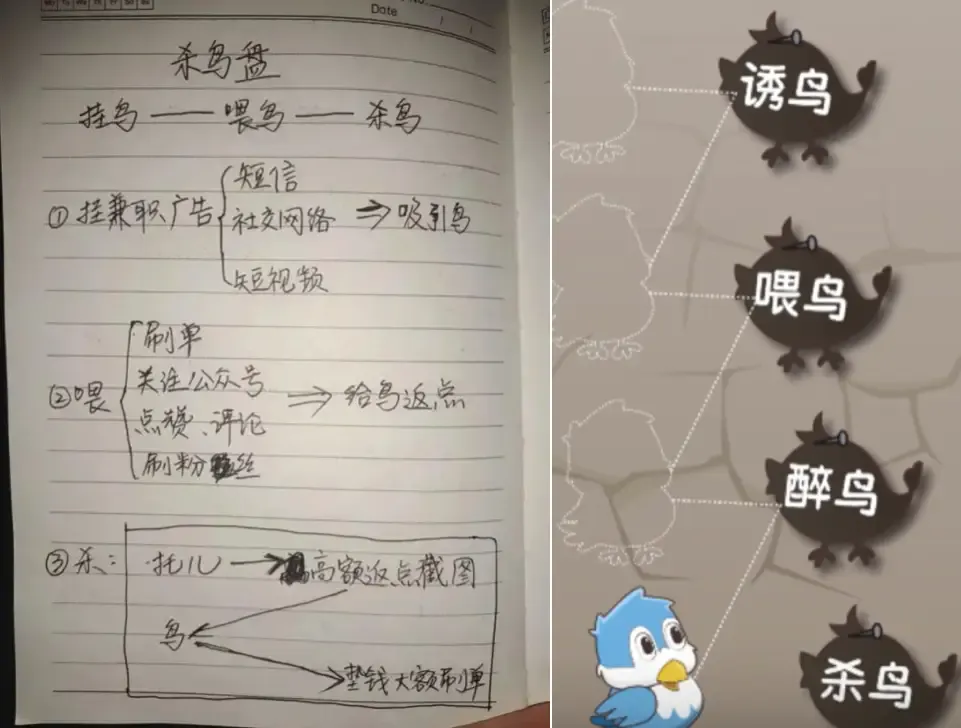 Date
杀鸟盘
挂鸟——喂鸟——杀鸟
①挂兼职广告
短信
社交网络
短视频
⇒吸引鸟
②喂
刷单
关注公众号
点赞、评论
刷粉丝
⇒给鸟返点
③杀:
托儿→高额返点截图
鸟
垫钱大额刷单
诱鸟
喂鸟
醉鸟
杀鸟